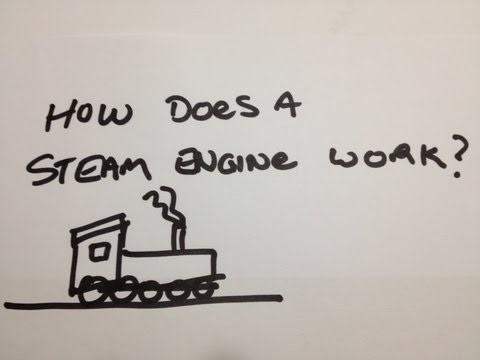 HOW DOES A
STEAM ENGINE WORK?